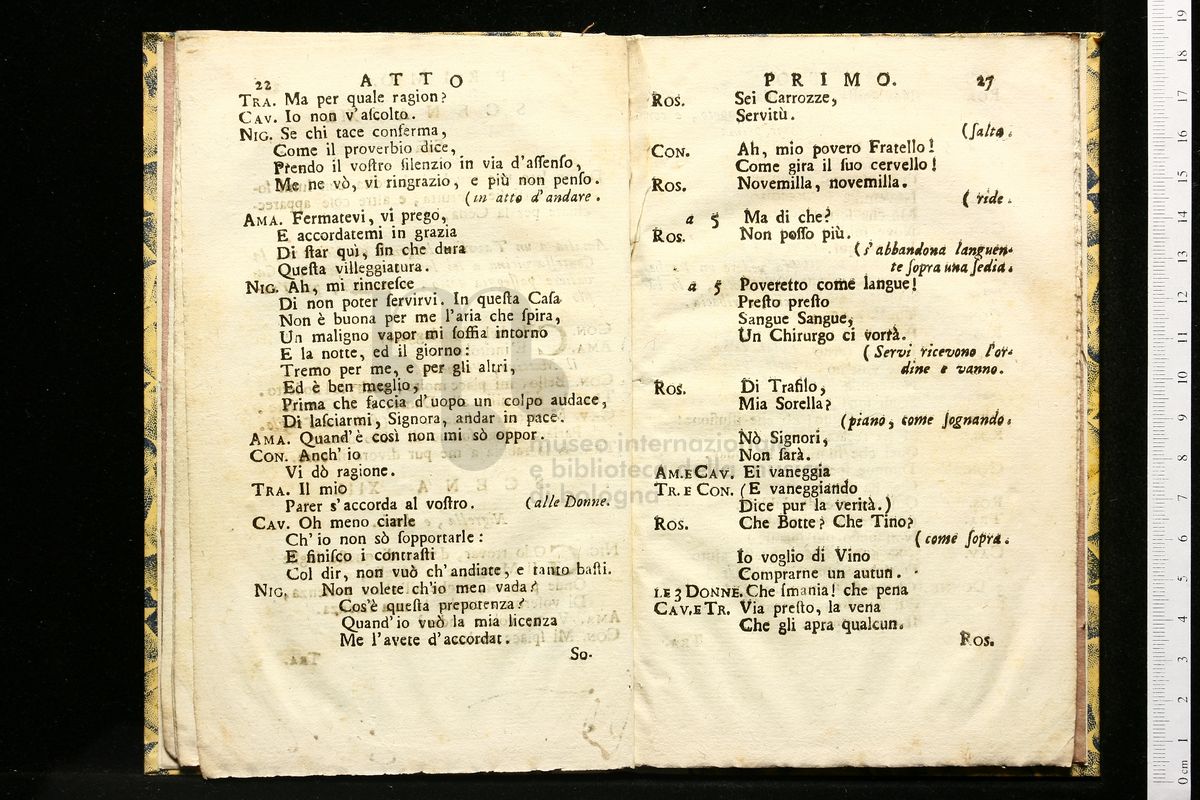 22 ATTO
TRA. Ma per quale ragion?
CAV. Io non v'aſcolto.
NIG. Se chi tace conferma,
Come il proverbio dice,
Prendo il voſtro ſilenzio in via d'aſſenſo,
Me ne vò, vi ringrazio, e più non penſo.
(in atto d'andare.
AMA. Fermatevi, vi prego,
E accordatemi in grazia
Di ſtar quì, ſin che dura
Queſta villeggiatura.
NIG. Ah, mi rincreſce
Di non poter ſervirvi. In queſta Caſa
Non è buona per me l'aria che ſpira,
Un maligno vapor mi ſoffia intorno
E la notte, ed il giorno:
Tremo per me, e per gli altri,
Ed è ben meglio,
Prima che faccia d'uopo un colpo audace,
Di laſciarmi, Signora, andar in pace.
AMA. Quand'è così non mi sò oppor.
CON. Anch' io
Vi dò ragione.
TRA. Il mio
Parer s'accorda al voſtro. (alle Donne.
CAV. Oh meno ciarle
Ch' io non sò ſopportarle:
E finiſco i contraſti
Col dir, non vuò ch'andiate, e tanto baſti.
NIG. Non volete ch'io men vada?
Cos'è queſta prepotenza?
Quand'io vuò la mia licenza
Me l'avete d'accordat.
So-
PRIMO. 27
ROS. Sei Carrozze,
Servitù.
(ſalta.
CON. Ah, mio povero Fratello!
Come gira il ſuo cervello!
ROS. Novemilla, novemilla.
(ride.
a 5 Ma di che?
ROS. Non poſſo più.
(s'abbandona languen-
te ſopra una ſedia.
a 5 Poveretto come langue!
Preſto preſto
Sangue Sangue,
Un Chirurgo ci vorrà.
(Servi ricevono l'or-
dine e vanno.
ROS. Di Trafilo,
Mia Sorella?
(piano, come ſognando.
Nò Signori,
Non ſarà.
AM.E CAV. Ei vaneggia
TR. E CON. (E vaneggiando
Dice pur la verità.)
ROS. Che Botte? Che Tino?
(come ſopra.
Io voglio di Vino
Comprarne un autun.
LE 3 DONNE. Che ſmania! che pena
CAV.E TR. Via preſto, la vena
Che gli apra qualcun.
ROS.
museo internazionale
e biblioteca della musica
di bologna